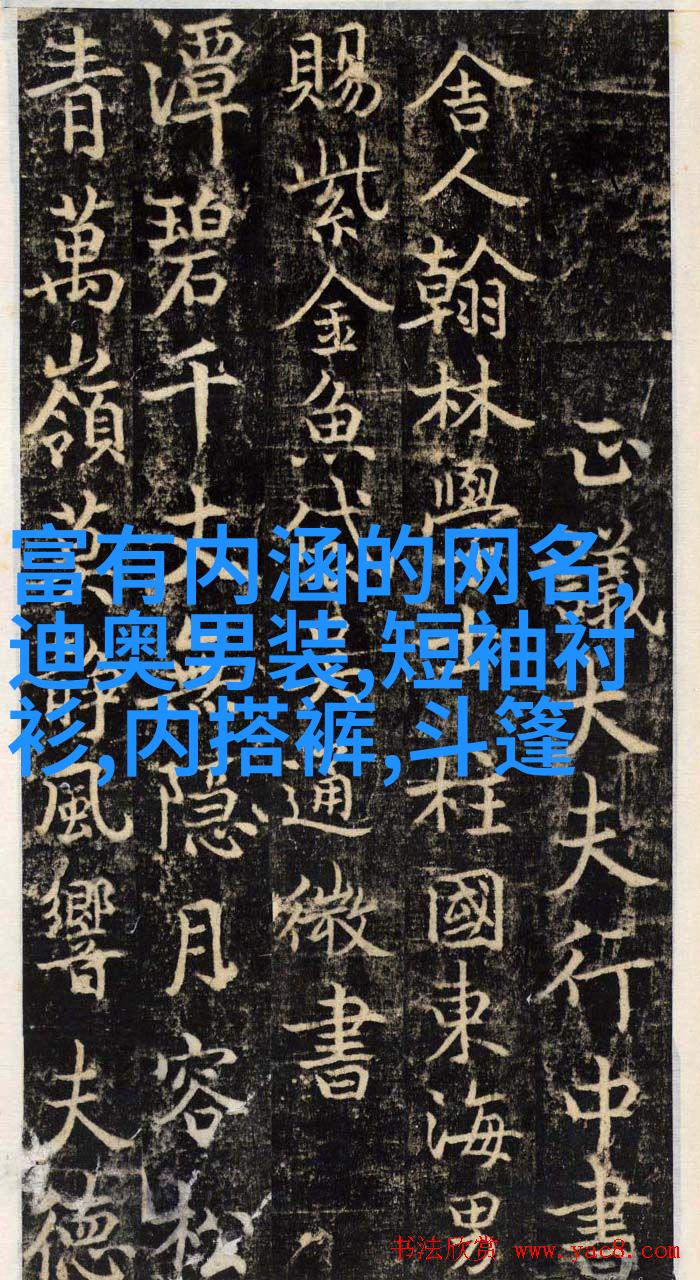 正議大夫行中書
舍人翰林學士柱國東海男
賜紫金魚袋吴通微書
潭碧千丈隐月容松
青萬嶺風響夫德
富有内涵的网名,
迪奥男装,短袖衬
衫,内搭裤,斗篷
书法欣赏 www.yac8.com